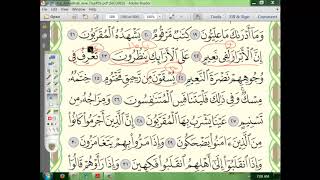 وَمَآ أَدْرَىٰكَ مَا عِلِّيُّونَ ١٩ كِتَٰبٌ مَّرْقُومٌ ٢٠ يَشْهَدُهُ ٱلْمُقَرَّبُونَ ٢١
إِنَّ ٱلْأَبْرَارَ لَفِى نَعِيمٍ ٢٢ عَلَى ٱلْأَرَآئِكِ يَنظُرُونَ ٢٣ تَعْرِفُ فِى
وُجُوهِهِمْ نَضْرَةَ ٱلنَّعِيمِ ٢٤ يُسْقَوْنَ مِن رَّحِيقٍ مَّخْتُومٍ ٢٥ خِتَٰمُهُۥ
مِسْكٌ وَفِى ذَٰلِكَ فَلْيَتَنَافَسِ ٱلْمُتَنَٰفِسُونَ ٢٦ وَمِزَاجُهُۥ مِن
تَسْنِيمٍ ٢٧ عَيْنًا يَشْرَبُ بِهَا ٱلْمُقَرَّبُونَ ٢٨ إِنَّ ٱلَّذِينَ أَجْرَمُوا۟ كَانُوا۟
مِنَ ٱلَّذِينَ ءَامَنُوا۟ يَضْحَكُونَ ٢٩ وَإِذَا مَرُّوا۟ بِهِمْ يَتَغَامَزُونَ ٣٠
وَإِذَا ٱنقَلَبُوٓا۟ إِلَىٰٓ أَهْلِهِمُ ٱنقَلَبُوا۟ فَكِهِينَ ٣١ وَإِذَا رَأَوْهُمْ قَالُوٓا۟